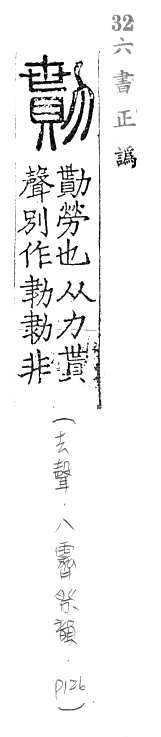 32 六書正譌
勩
勩勞也从力貰
聲別作非
(去聲．八霽祭韻．P126)